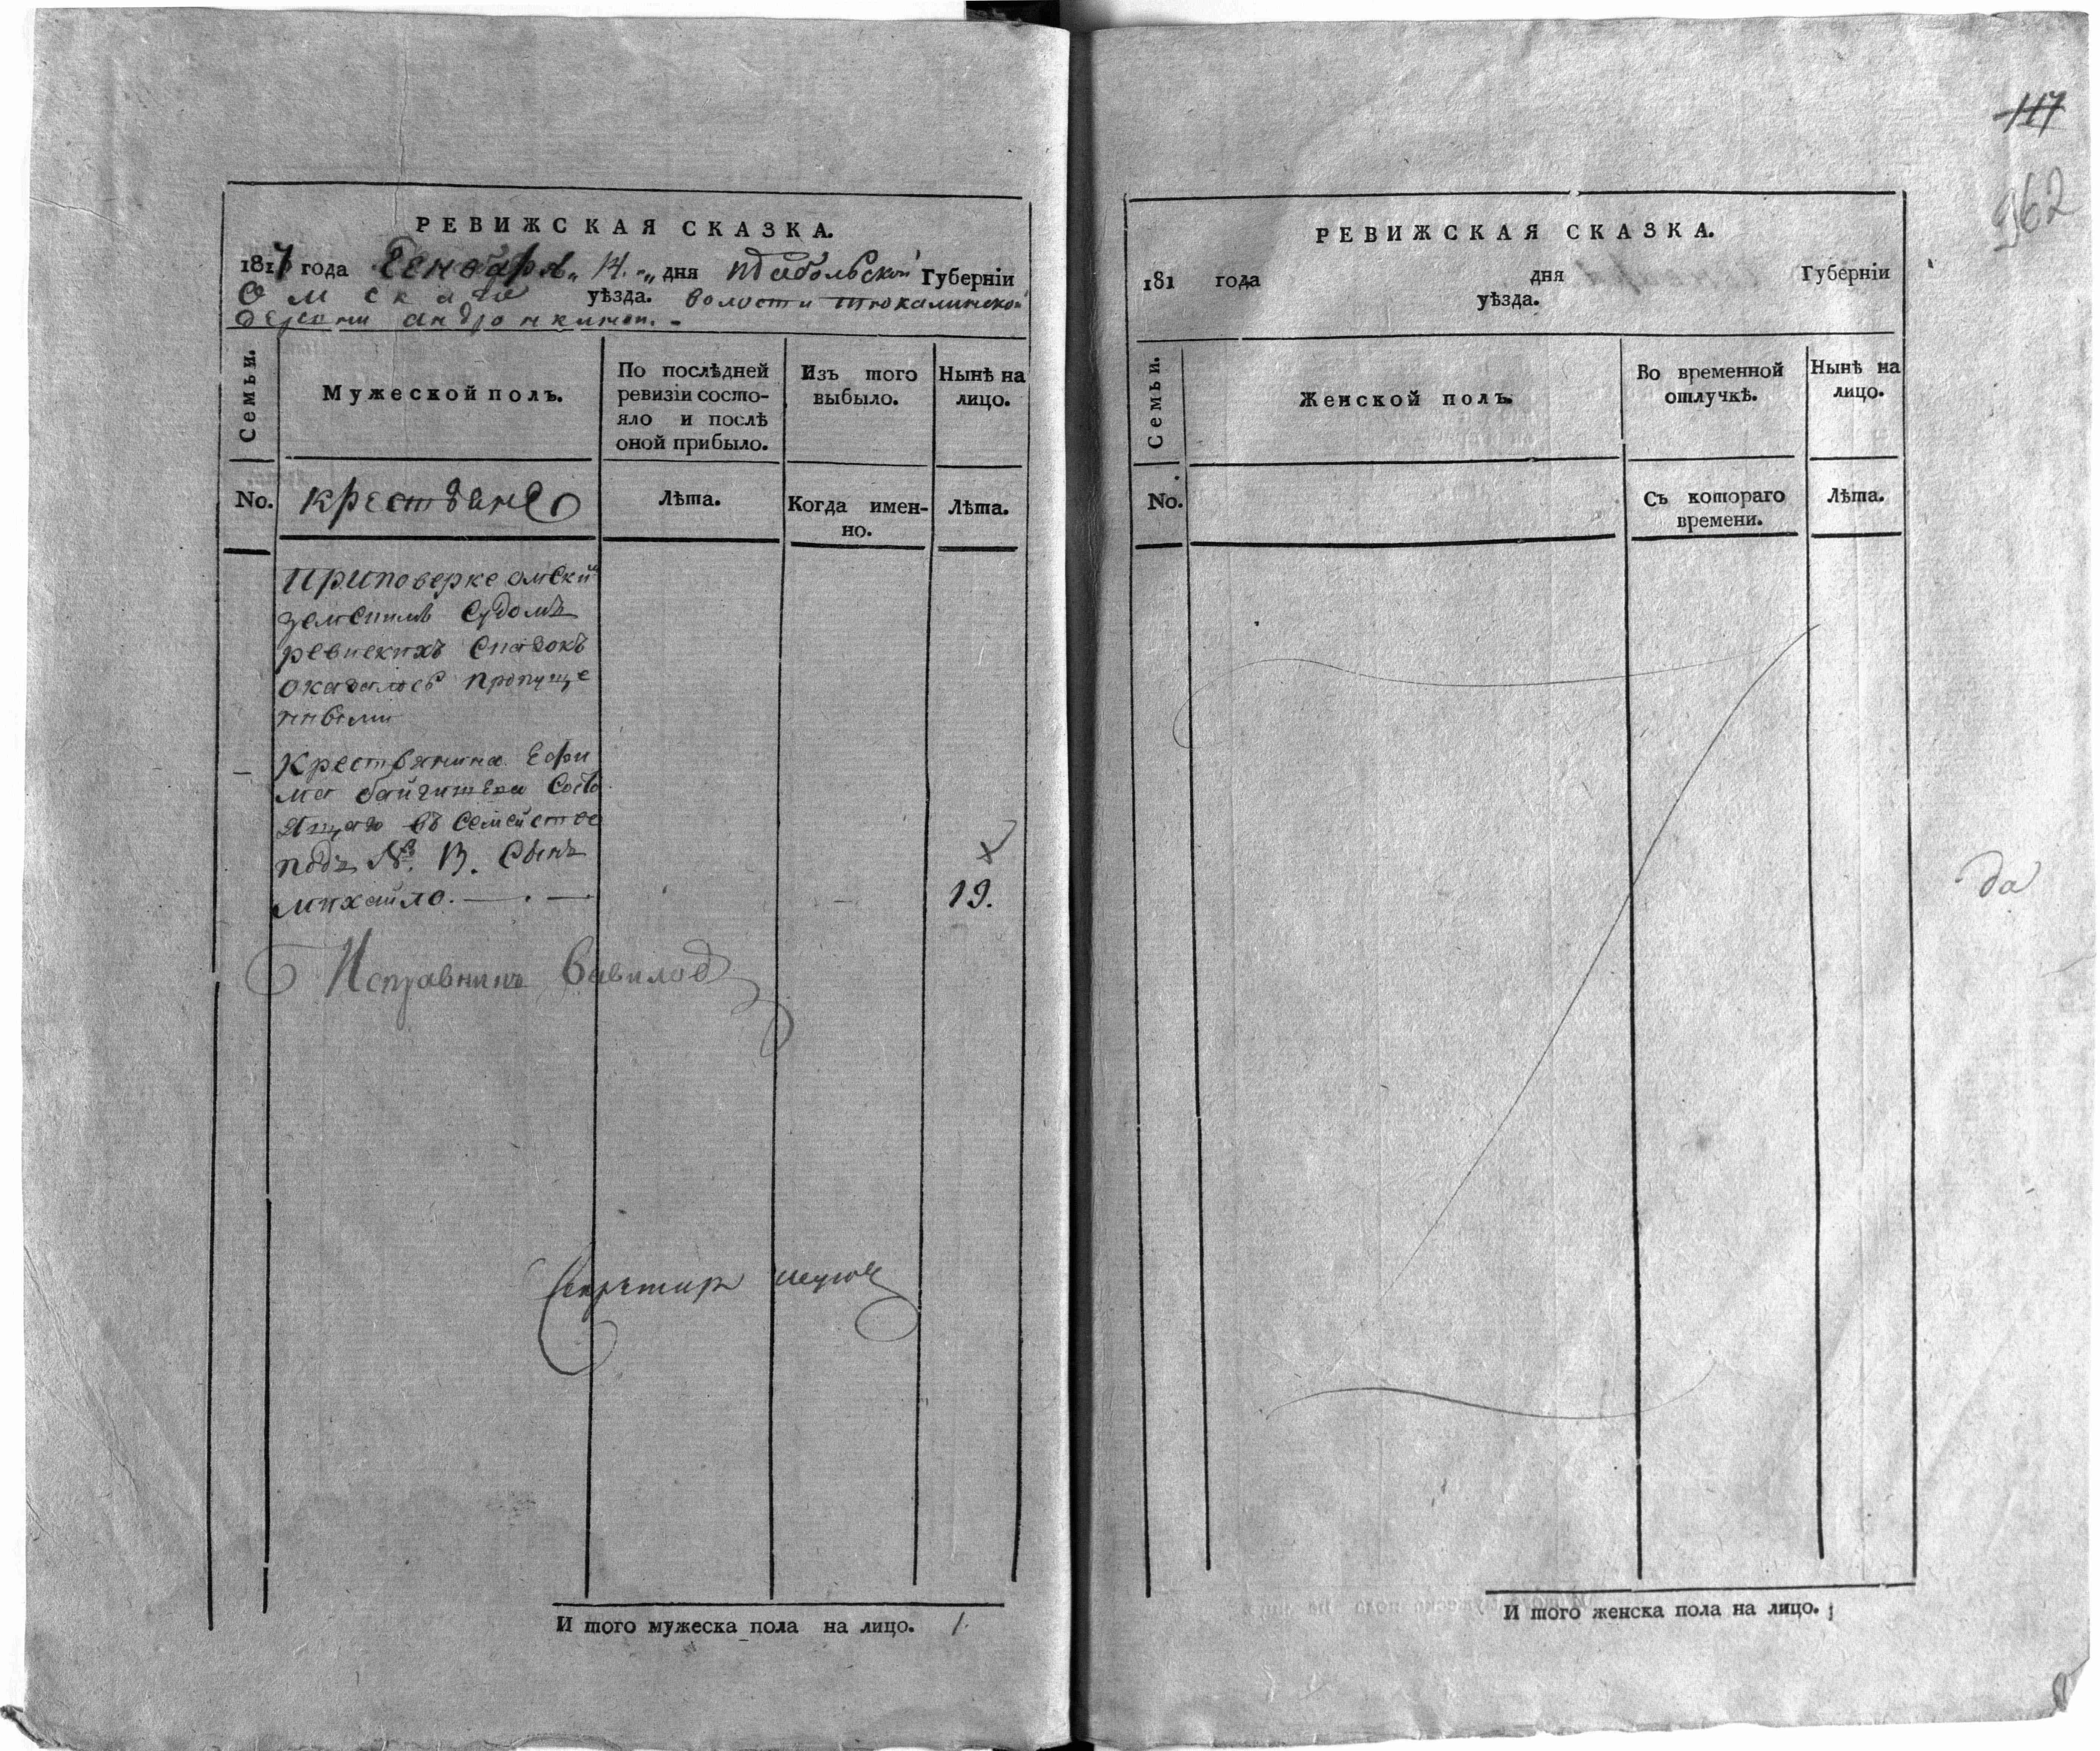 РЕВИЖСКАЯ СКАЗКА.
1817 года Генваря „ 14. „ дня Тобольской Губерніи
Омскаго уѣзда. волости тюкалинской
деревни андронкиной. -
Семьи.
Мужеской полъ.
По послѣдней ревизіи состо-
яло и послѣ
оной прибыло.
Изъ того
выбыло.
Нынѣ на
лицо.
No.
крестьяне
Лѣта.
Когда имен-
но.
Лѣта.
При поверке омски
земскимъ Судомъ
ревискихъ Сказокъ
оказалось пропуще
нными
Крестьянина Ефи
ма Состо
ящаго въ Семействе
подъ № 13. Сынъ
михайло. — . —
19.
Исправникъ Вавилов
Секретарь
И того мужеска пола на лицо. 1.
117
962
РЕВИЖСКАЯ СКАЗКА.
181 года дня Губерніи
уѣзда.
Семьи.
Женской полъ.
Во временной
отлучкѣ.
Нынѣ на
лицо.
No.
Съ котораго
времени.
Лѣта.
да
И того женска пола на лицо.